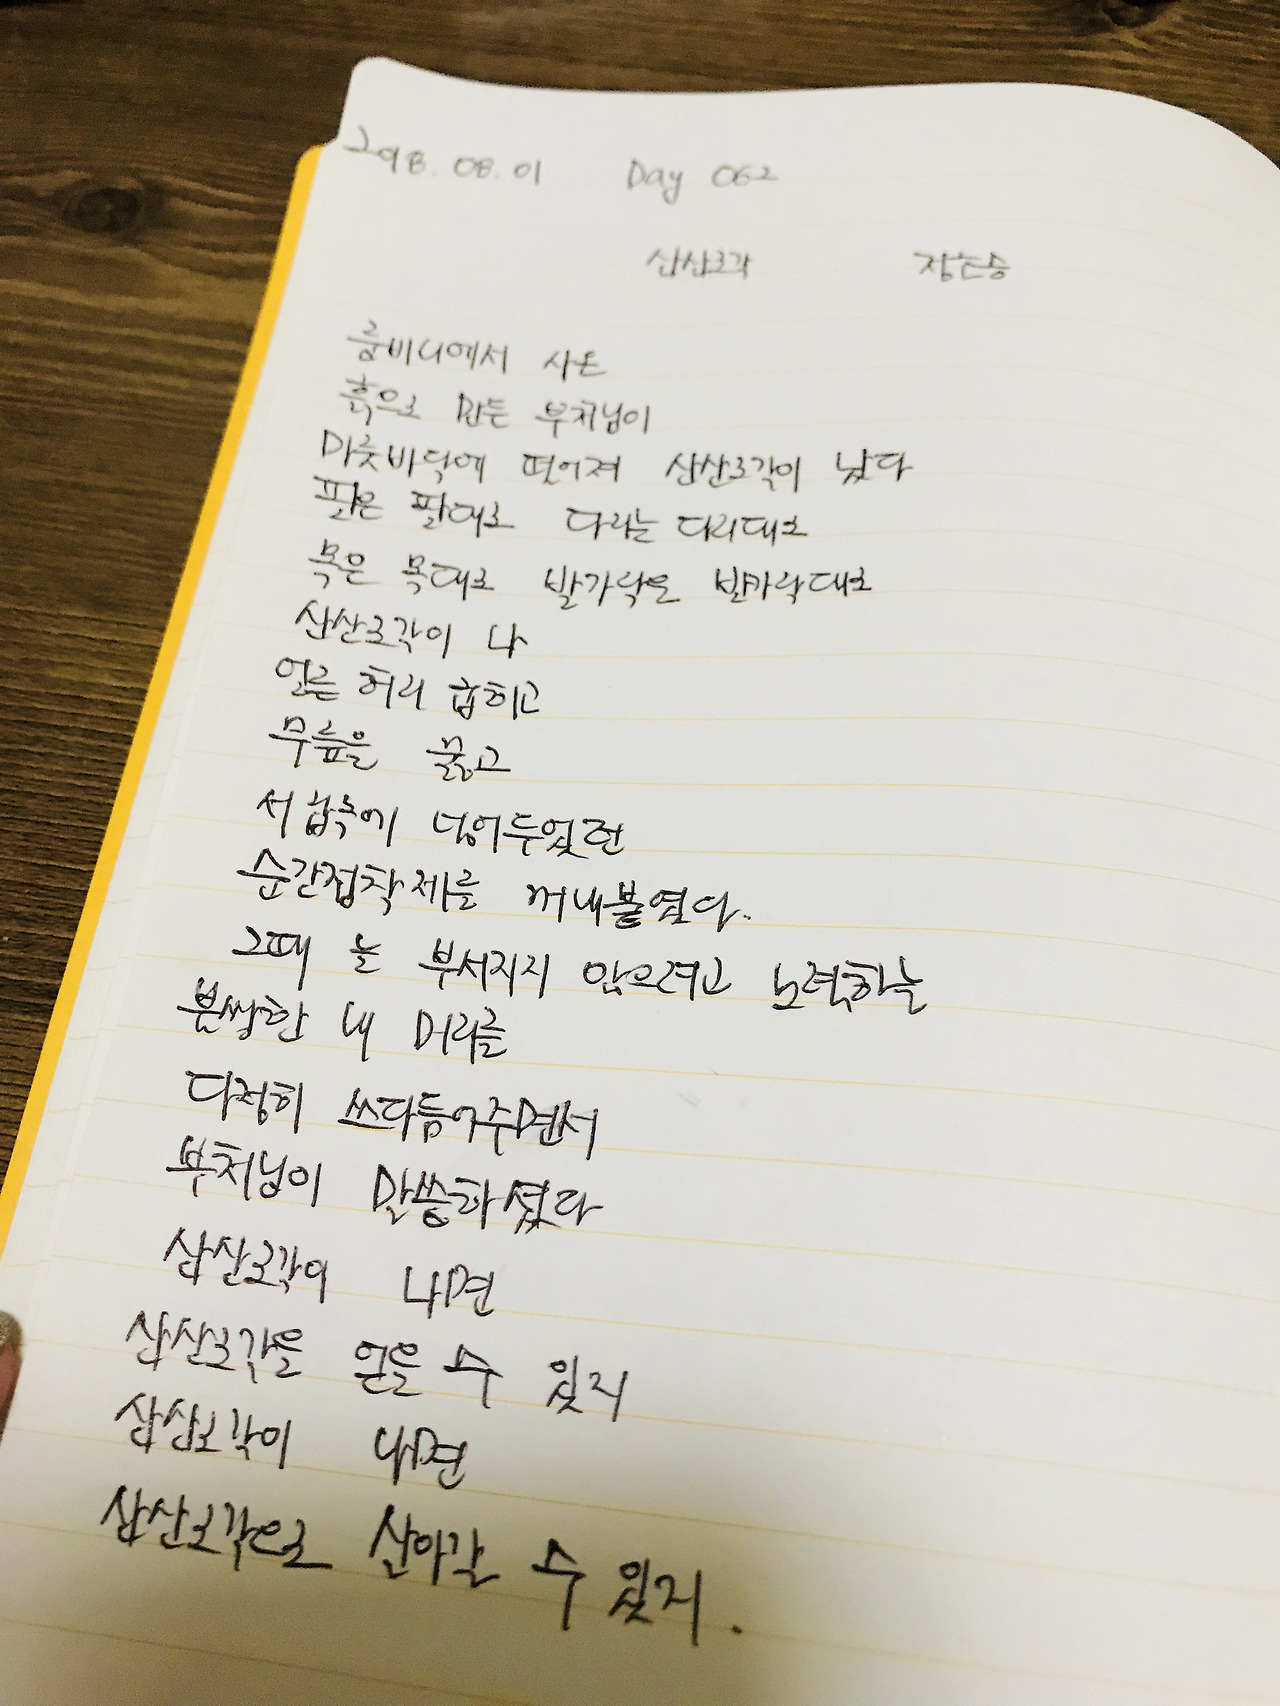 2018.08.01 Day 062
산산조각 정호승
룸비니에서 사온
흙으로 만든 부처님이
마룻바닥에 떨어져 산산조각이 났다
팔은 팔대로 다리는 다리대로
목은 목대로 발가락은 발가락대로
산산조각이 나
얼른 허리 굽히고
무릎을 꿇고
서랍속에 넣어두었던
순간접착제를 꺼내붙였다.
그때 늘 부서지지 않으려고 노력하는
불쌍한 내 머리를
다정히 쓰다듬어주면서
부처님이 말씀하셨다
산산조각이 나면
산산조각을 얻을 수 있지
산산조각이 나면
산산조각으로 살아갈 수 있지.